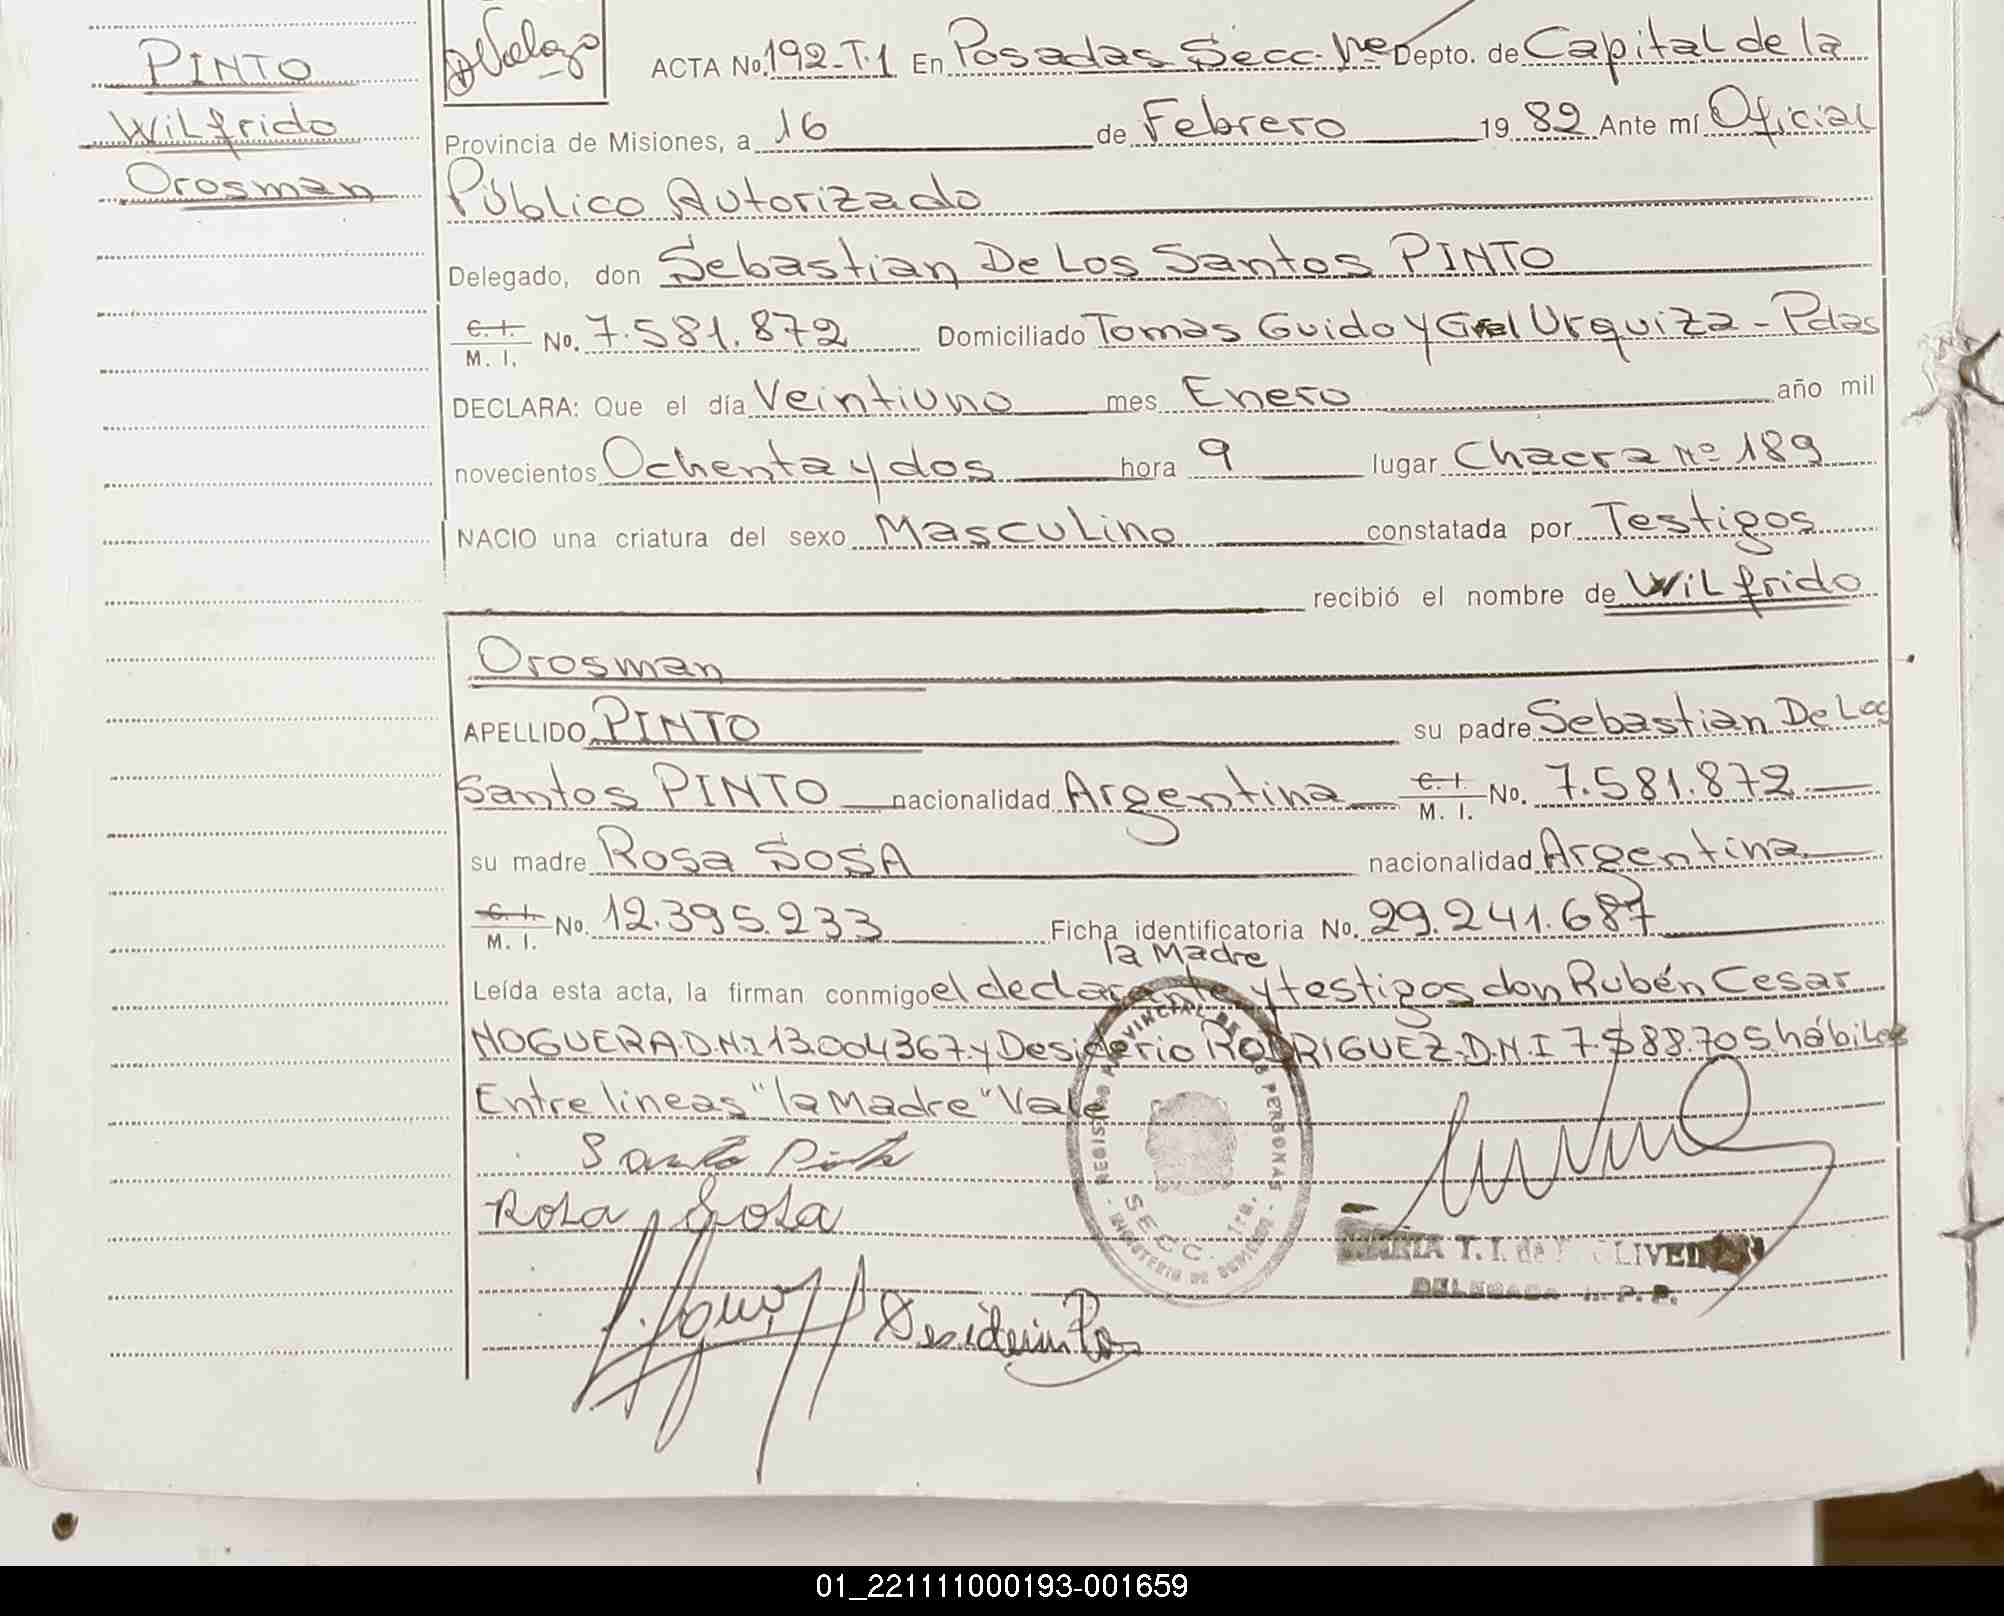 PINTO
Wilfrido
Orosman
ACTA No. 192-T.1 En Posadas Secc. 1ra Depto. de Capital de la
Provincia de Misiones, a 16 de Febrero 1982 Ante mí Oficial
Público Autorizado
Delegado, don Sebastian De Los Santos PINTO
C. I. M. I. No. 7.581.872 Domiciliado Tomas Guido y Gral Urquiza - Pdas
DECLARA: Que el día Veintiuno mes Enero año mil
novecientos Ochenta y dos hora 9 lugar Chacra Nº 189
NACIO una criatura del sexo Masculino constatada por Testigos
recibió el nombre de Wilfrido
Orosman
APELLIDO PINTO su padre Sebastian De Los
Santos PINTO nacionalidad Argentina C. I. M. I. No. 7.581.872
su madre Rosa SOSA nacionalidad Argentina
C. I. M. I. No. 12.395.233 Ficha identificatoria No. 29.241.687
la Madre
Leída esta acta, la firman conmigo el declarante y testigos don Rubén Cesar
NOGUERA D.N.I 13.004367 y Desiderio RODRIGUEZ. D.N.I 7.588.705 hábiles
Entre lineas "la Madre" Vale
Santo Pinto
Rosa Sosa
REGISTRO PROVINCIAL DE LAS PERSONAS
SECC. 1ra.
MARIA T. I. de OLIVEIRA
DELEGADA R. P. P.
01_221111000193-001659